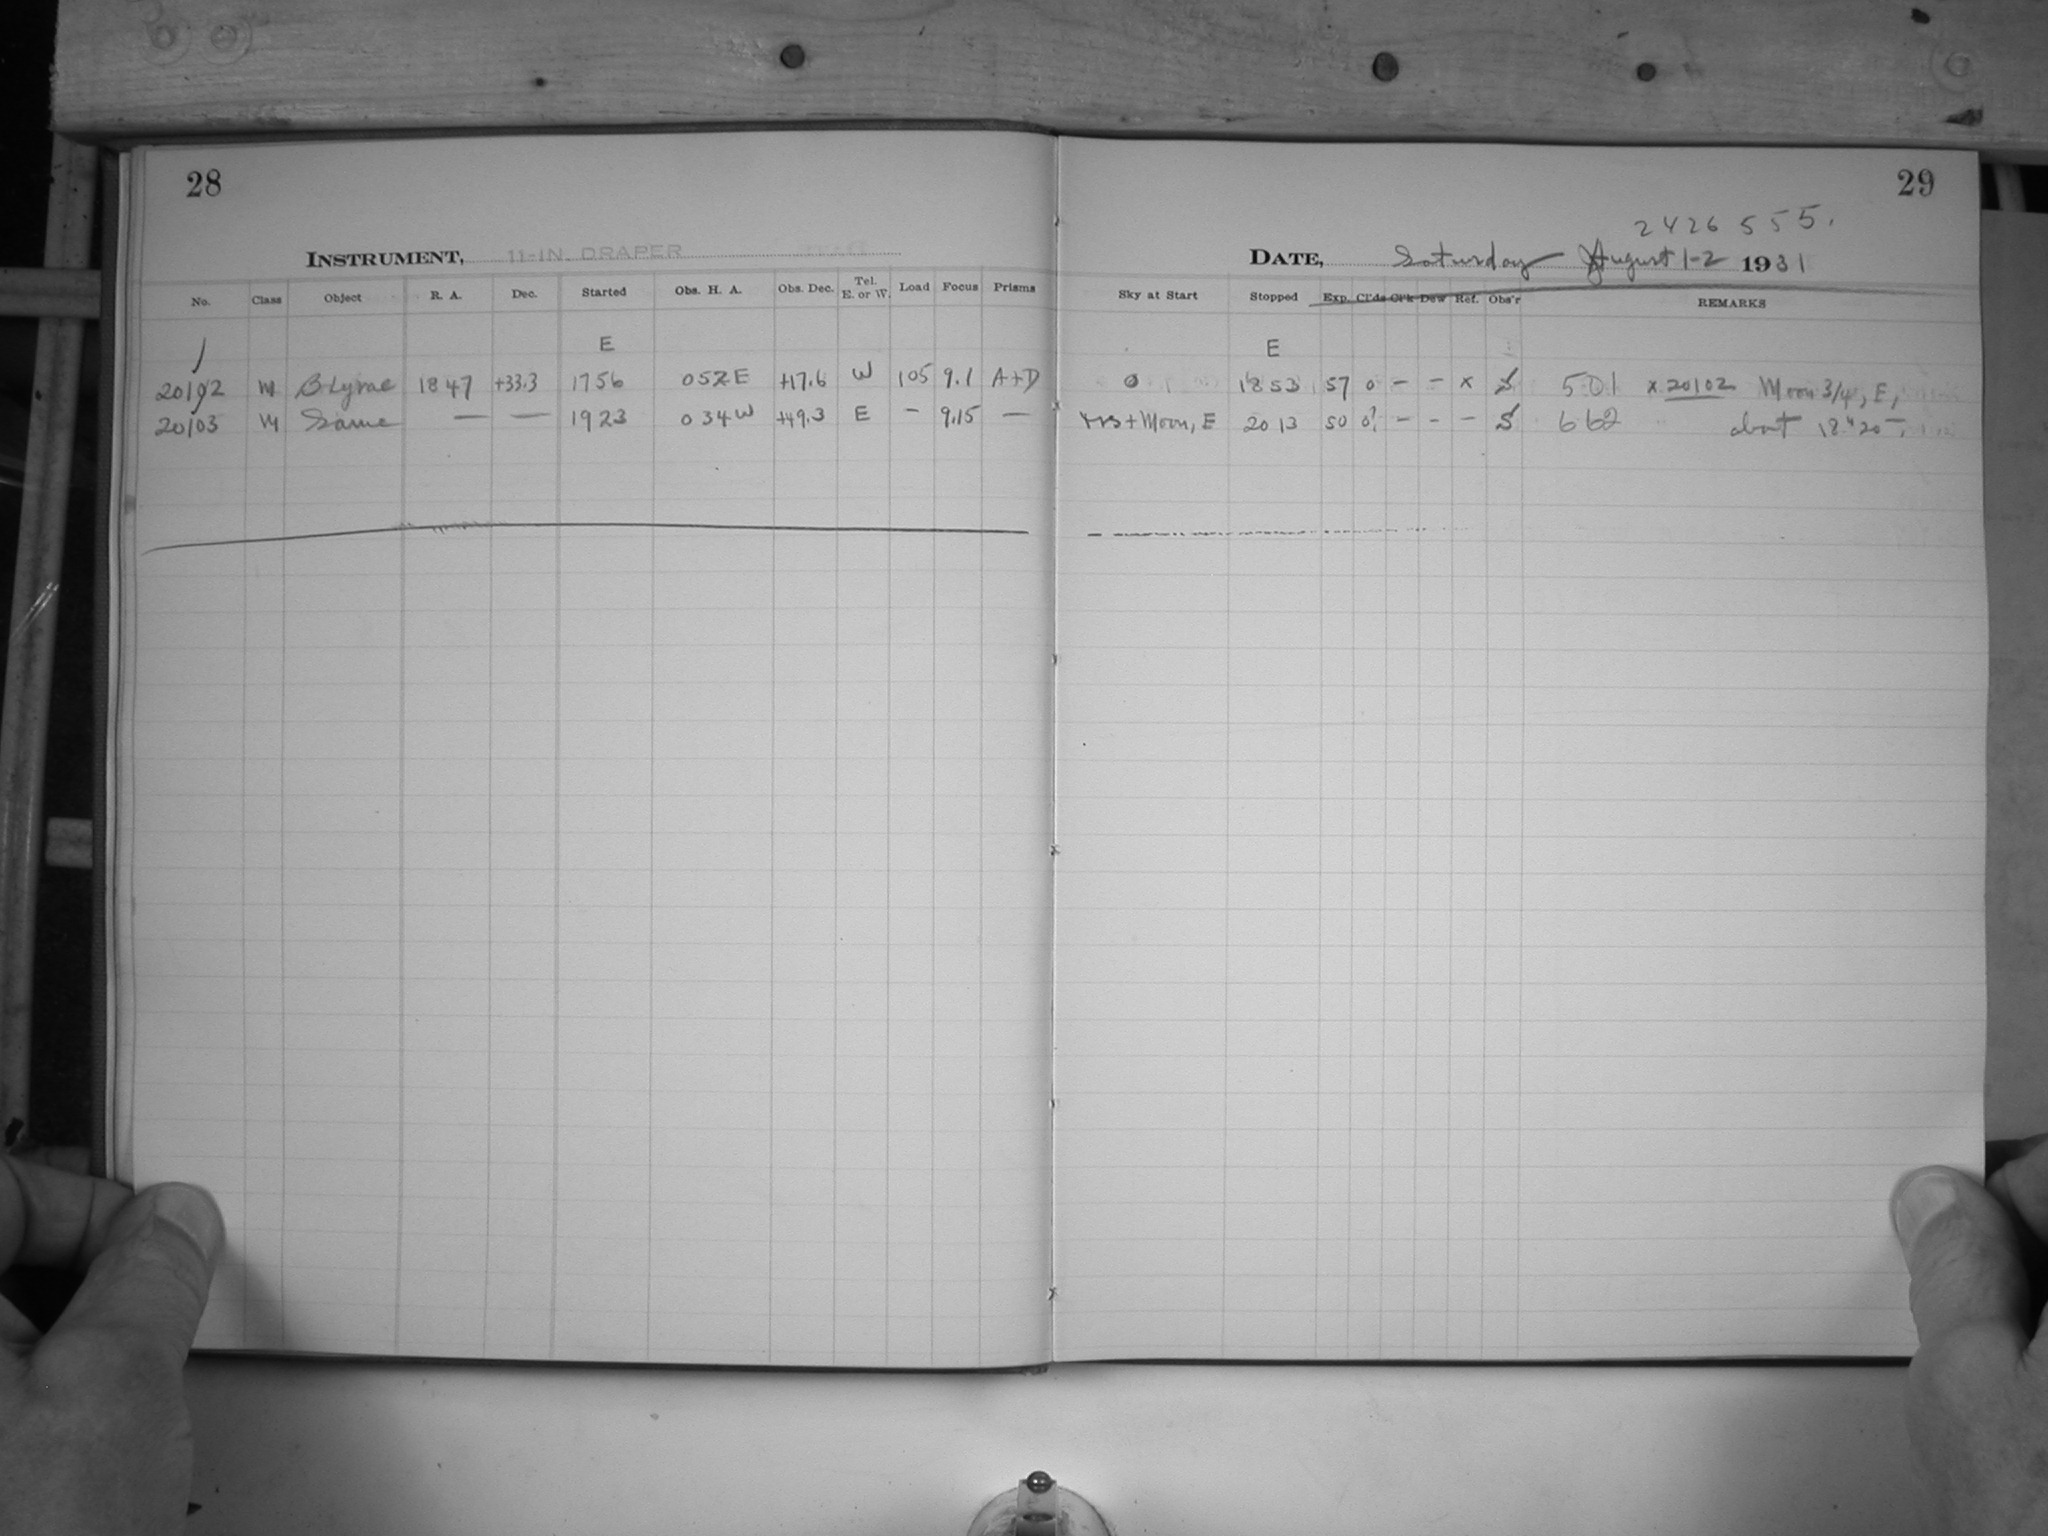 28
INSTRUMENT, 11-IN. DRAPER
No. Class Object R. A. Dec. Started Obs. H. A. Obs. Dec. Tel. E. or W. Load Focus Prisms
E
20102 M β Lyrae 18 47 +33.3 17 56 0 52 E +17.6 W 105 9.1 A+D
20103 M Same — — 19 23 0 34 W +49.3 E - 9.15 —
29
2426 555.
DATE, Saturday August 1-2 1931
Sky at Start Stopped Exp. Cl'ds Cl'k Dew Ref. Obs'r REMARKS
E
0 18 53 57 0 - - x S 501 x 20102 Moon 3/4, E,
+ Moon, E 20 13 50 0? - - - S 662 about 18h 20